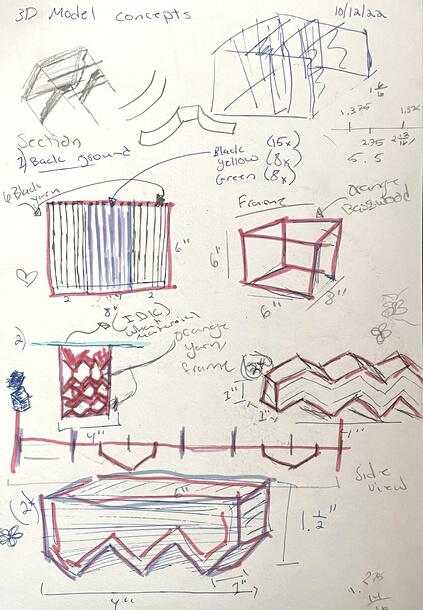 3D Model concepts
10/12/22
1.375
2.75
5.5
Section
1) Back ground
Black (15x)
yellow (8x)
Green (8x)
6 Black yarn
Frame
Orange
Basswood
6"
6"
2 4 2
8"
6"
3"
2)
(IDK
what
material)
Orange
yarn
frame
1"
1"
4"
1"
Side
view
(2x)
6"
1.½"
4"
1"